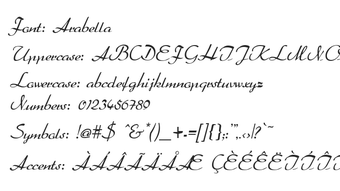 Font: Arabella
Uppercase: ABCDEFGHIJKLMNO
Lowercase: abcdefghijklmnopqrstuvwxyz
Numbers: 0123456789
Symbols: !@#$ ^&*()_+-=[]{};:'",.<>!?`~
Accents: ÀÁÂÃÄÅÆ ÇÈÉÊËÌÍÎ